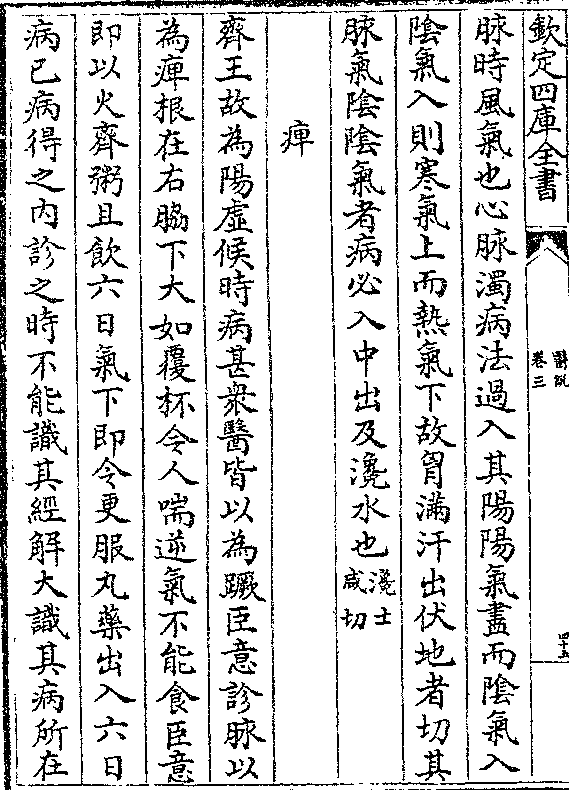 欽定四庫全書
醫說
卷三
四十五
脉時風氣也心脉濁病法過入其陽陽氣盡而陰氣入
陰氣入則寒氣上而熱氣下故胷滿汗出伏地者切其
脉氣陰陰氣者病必入中出及瀺水也瀺士咸切
痺
齊王故為陽虛候時病甚衆醫皆以為蹶臣意診脉以
為痺根在右脇下大如覆杯令人喘逆氣不能食臣意
即以火齊粥且飲六日氣下即令更服丸藥出入六日
病已病得之內診之時不能識其經解大識其病所在